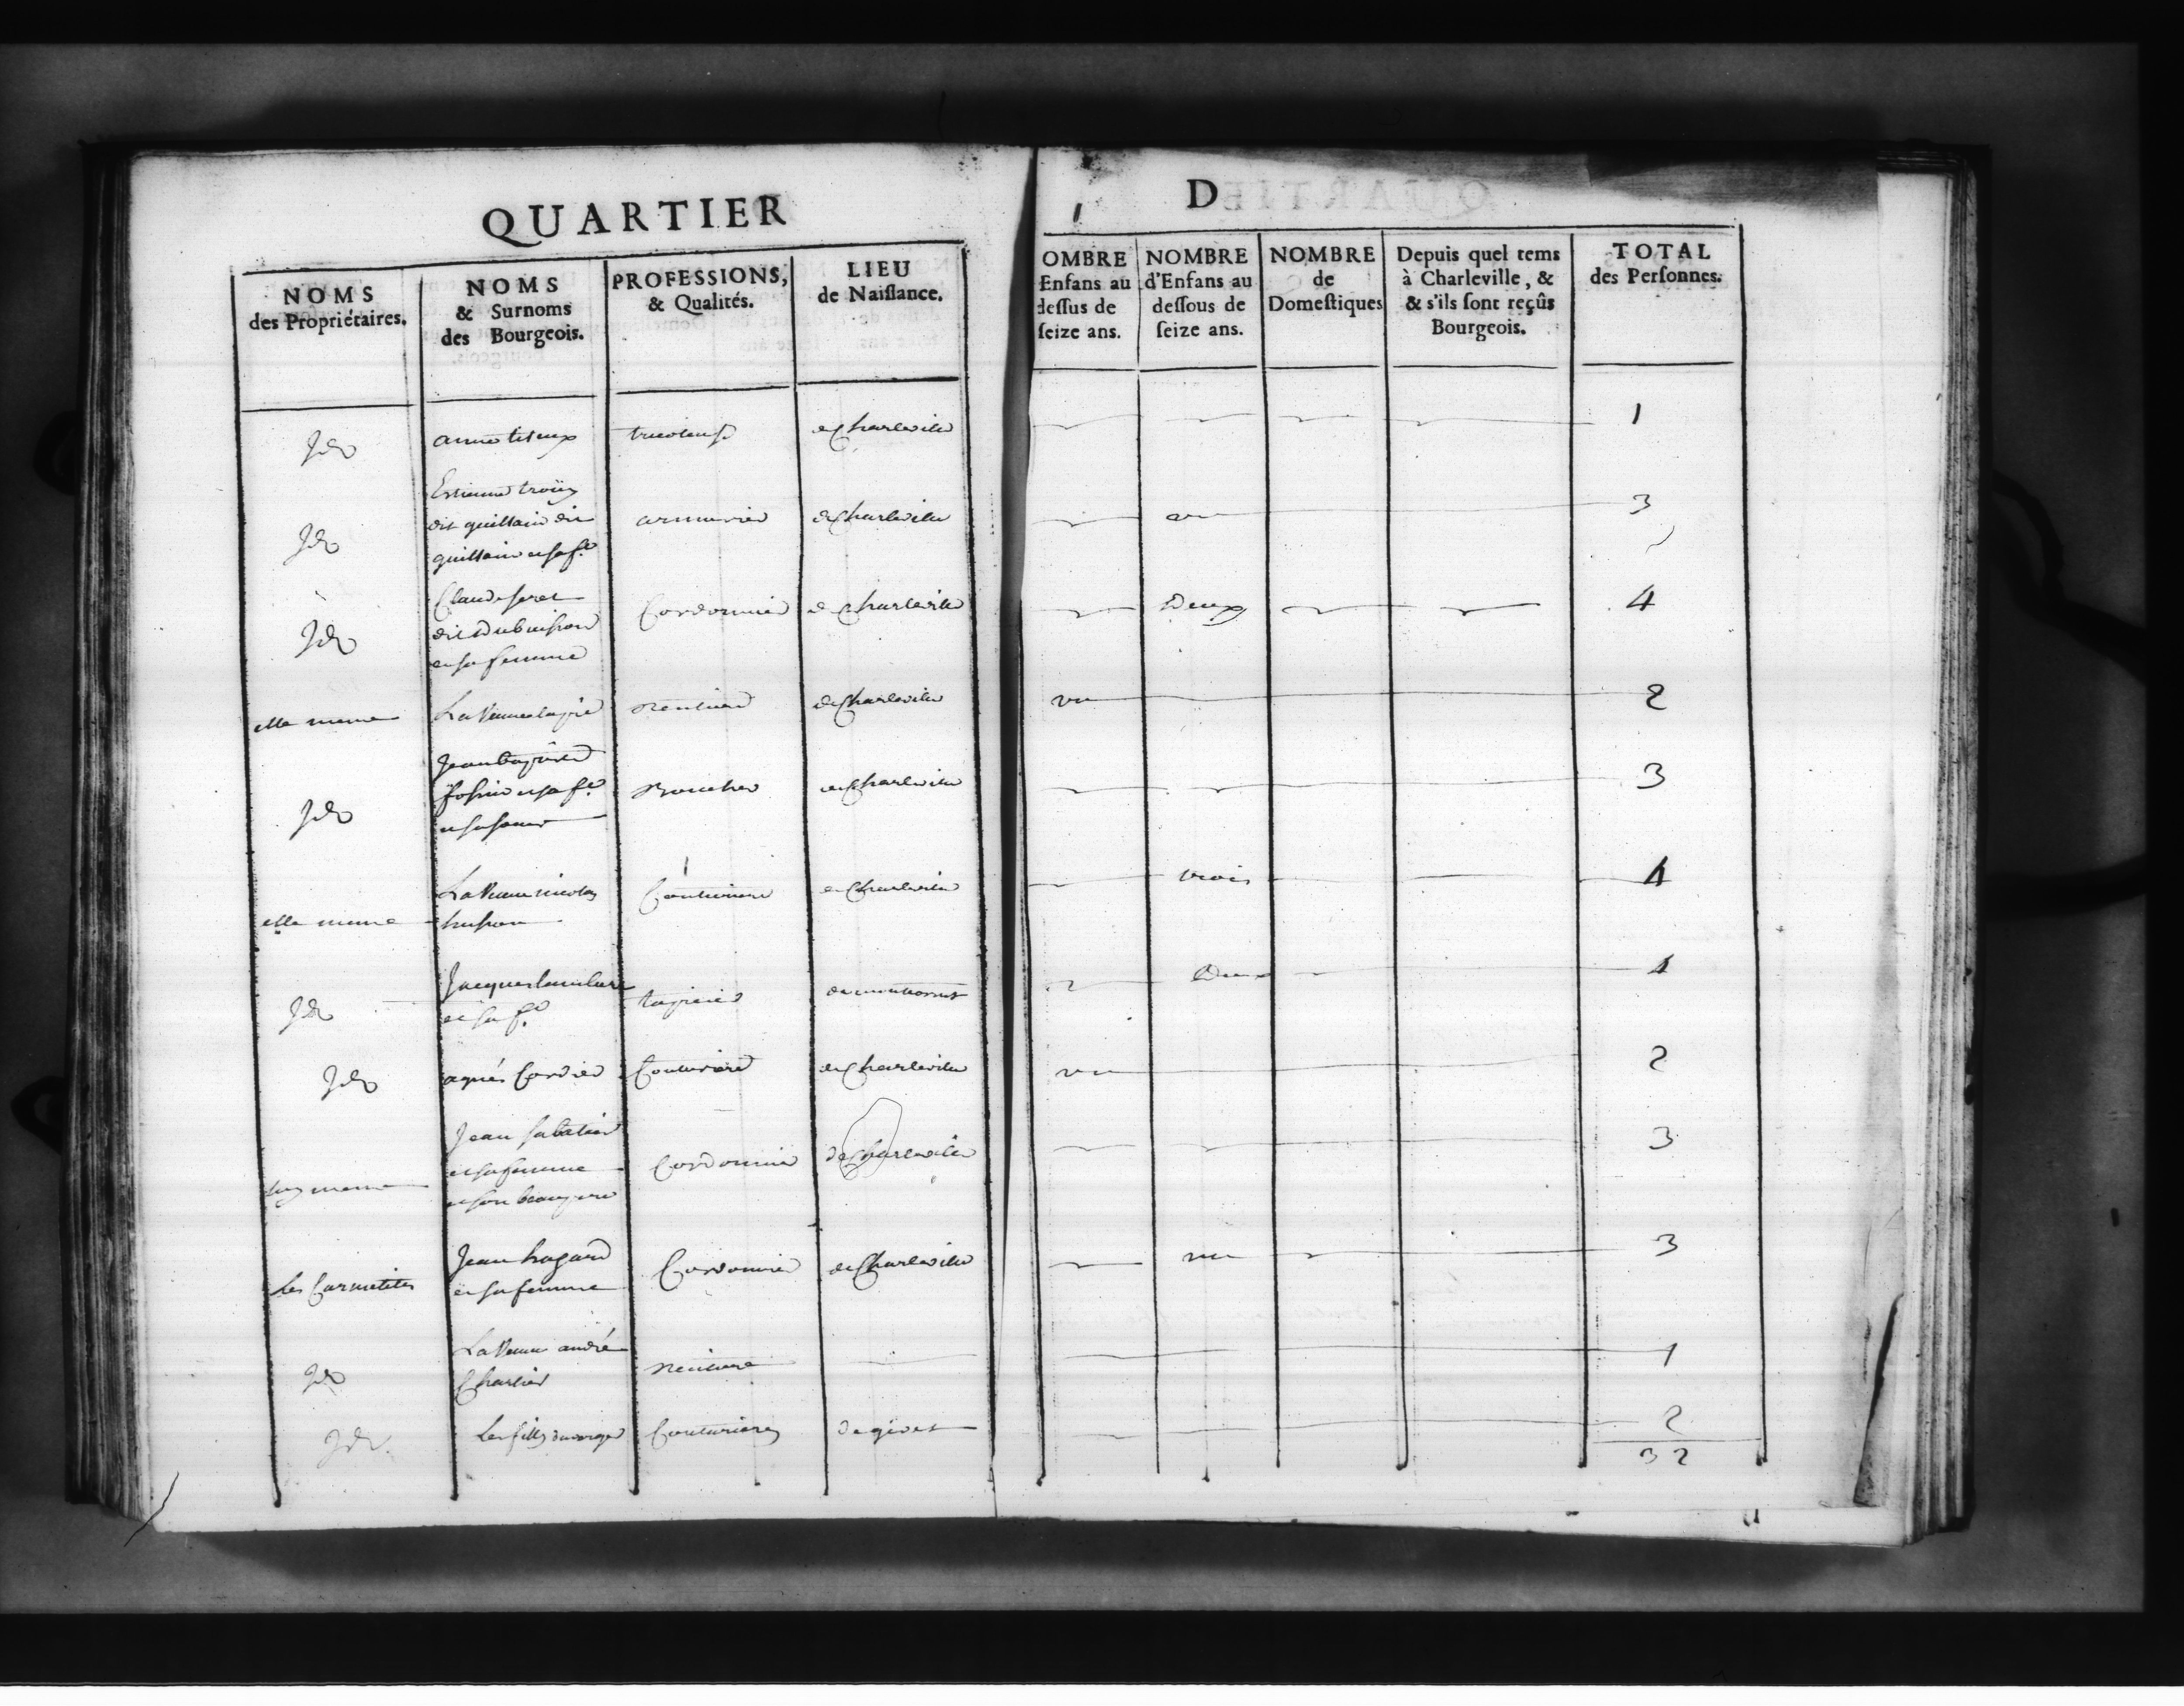 QUARTIER
D
NOMS
des Propriétaires.
NOMS
& Surnoms
des Bourgeois.
PROFESSIONS,
& Qualités.
LIEU
de Naissance.
OMBRE
Enfans au
dessus de
seize ans.
NOMBRE
d'Enfans au
dessous de
seize ans.
NOMBRE
de
Domestiques
Depuis quel tems
à Charleville, &
& s'ils sont reçûs
Bourgeois.
TOTAL
des Personnes.
Idem anne tricoteuse de Charleville 1
Estienne
dit guillain dit
Idem armurier de Charleville un 3
guillain et sa fe
Claude
Idem dit Dubuisson Cordonnier de Charleville Deux 4
et sa femme
elle meme La Veuve Rentiere de Charleville un 2
Jean baptiste
et sa fe Boucher de Charleville 3
Idem et sa soeur
La Veuve nicolas Couturiere de Charleville trois 4
elle meme husson
Jacques
Idem et sa fe tapissier Deux 4
Idem agnés Cordier Couturiere de Charleville un 2
Jean sabatier
luy meme et sa femme Cordonnier de Charleville 3
et son beaupere
Jean hagard Cordonnier de Charleville un 3
Les Carmelites et sa femme
La Veuve andré
Idem Charlier Rentiere 1
Idem Les filles Couturieres de givet 2
32